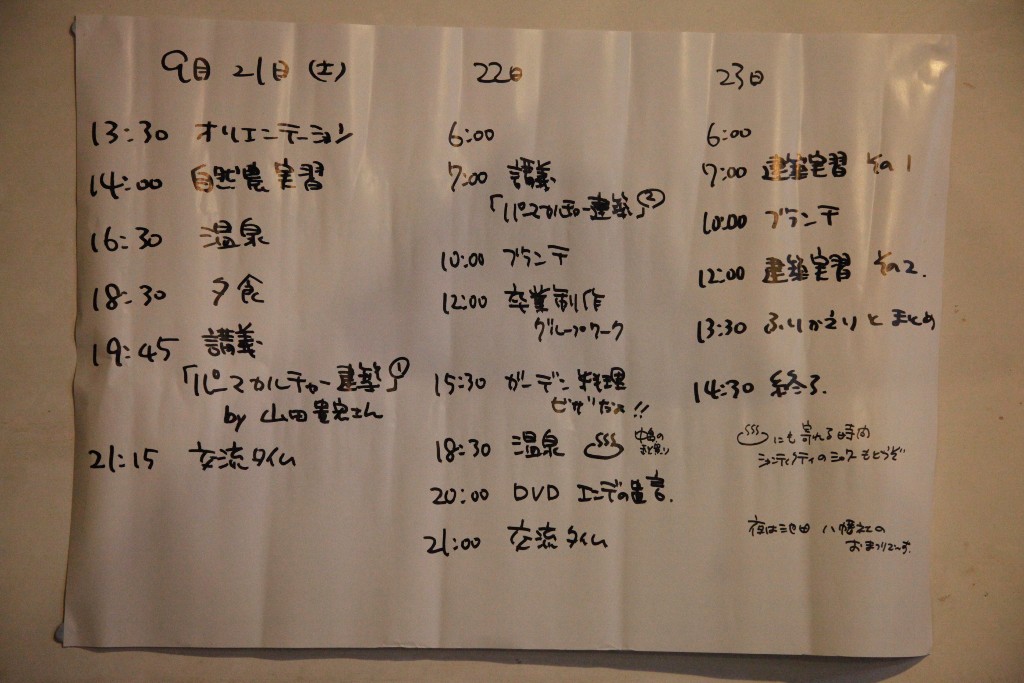 9月21日(土)
13:30 オリエンテーション
14:00 自然農実習
16:30 温泉
18:30 夕食
19:45 講義
「パーマカルチャー建築」①
by 山田貴宏さん
21:15 交流タイム
22日
6:00
7:00 講義
「パーマカルチャー建築」②
10:00 ブランチ
12:00 卒業制作
グループワーク
15:30 ガーデン料理
ピザだよ!!
18:30 温泉
20:00 DVD エンデの遺言.
21:00 交流タイム
23日
6:00
7:00 建築実習 その1
10:00 ブランチ
12:00 建築実習 その2.
13:30 ふりかえりとまとめ
14:30 終了.
にも寄れる時間
もどうぞ
夜は池田 八幡さまの
おまつりでーす.